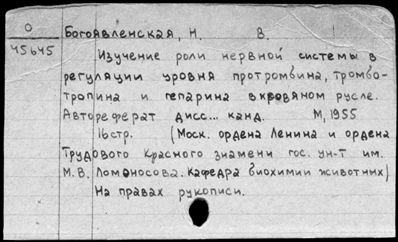 О
45645
Богоявленская, Н. В.
Изучение роли нервной системы в
регуляции уровня протромбина, тромбо-
тропина и гепарина в кровяном русле.
Автореферат дисс... канд. М, 1955
16 стр. (Моск. ордена Ленина и ордена
Трудового Красного знамени гос. ун-т им.
М.В. Ломоносова. Кафедра биохимии животных)
На правах рукописи.